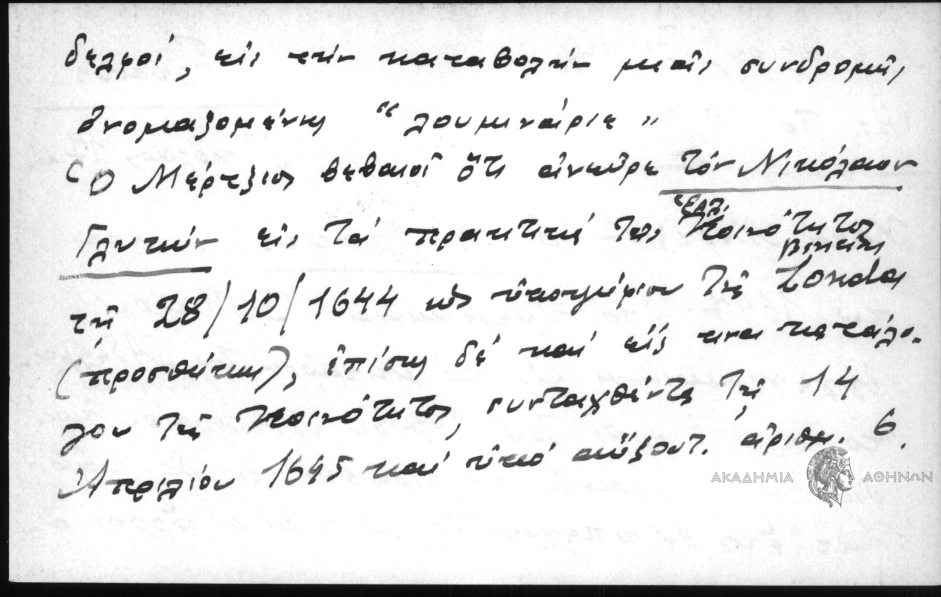 δελφοί, εἰς τήν καταβολήν μιᾶς συνδρομῆς
ὀνομαζομένης "λουμινάρια"
Ὁ Μέρτζιος βεβαιοῖ ὅτι ἀνεῦρε τόν Νικόλαον
Γλυκύν εἰς τά πρακτικά τῆς Ἑλλ. Κοινότητος
Βενετίας
τῇ 28/10/1644 ὡς ὑποψήφιον τῆς Zonda
(προσθήκης), ἐπίσης δέ καί εἰς ἕνα κατάλο-
γον τῆς Κοινότητος, συνταχθέντα τῇ 14
Ἀπριλίου 1645 καί ὑπό αὔξοντ. ἀριθμ. 6.
ΑΚΑΔΗΜΙΑ ΑΘΗΝΩΝ